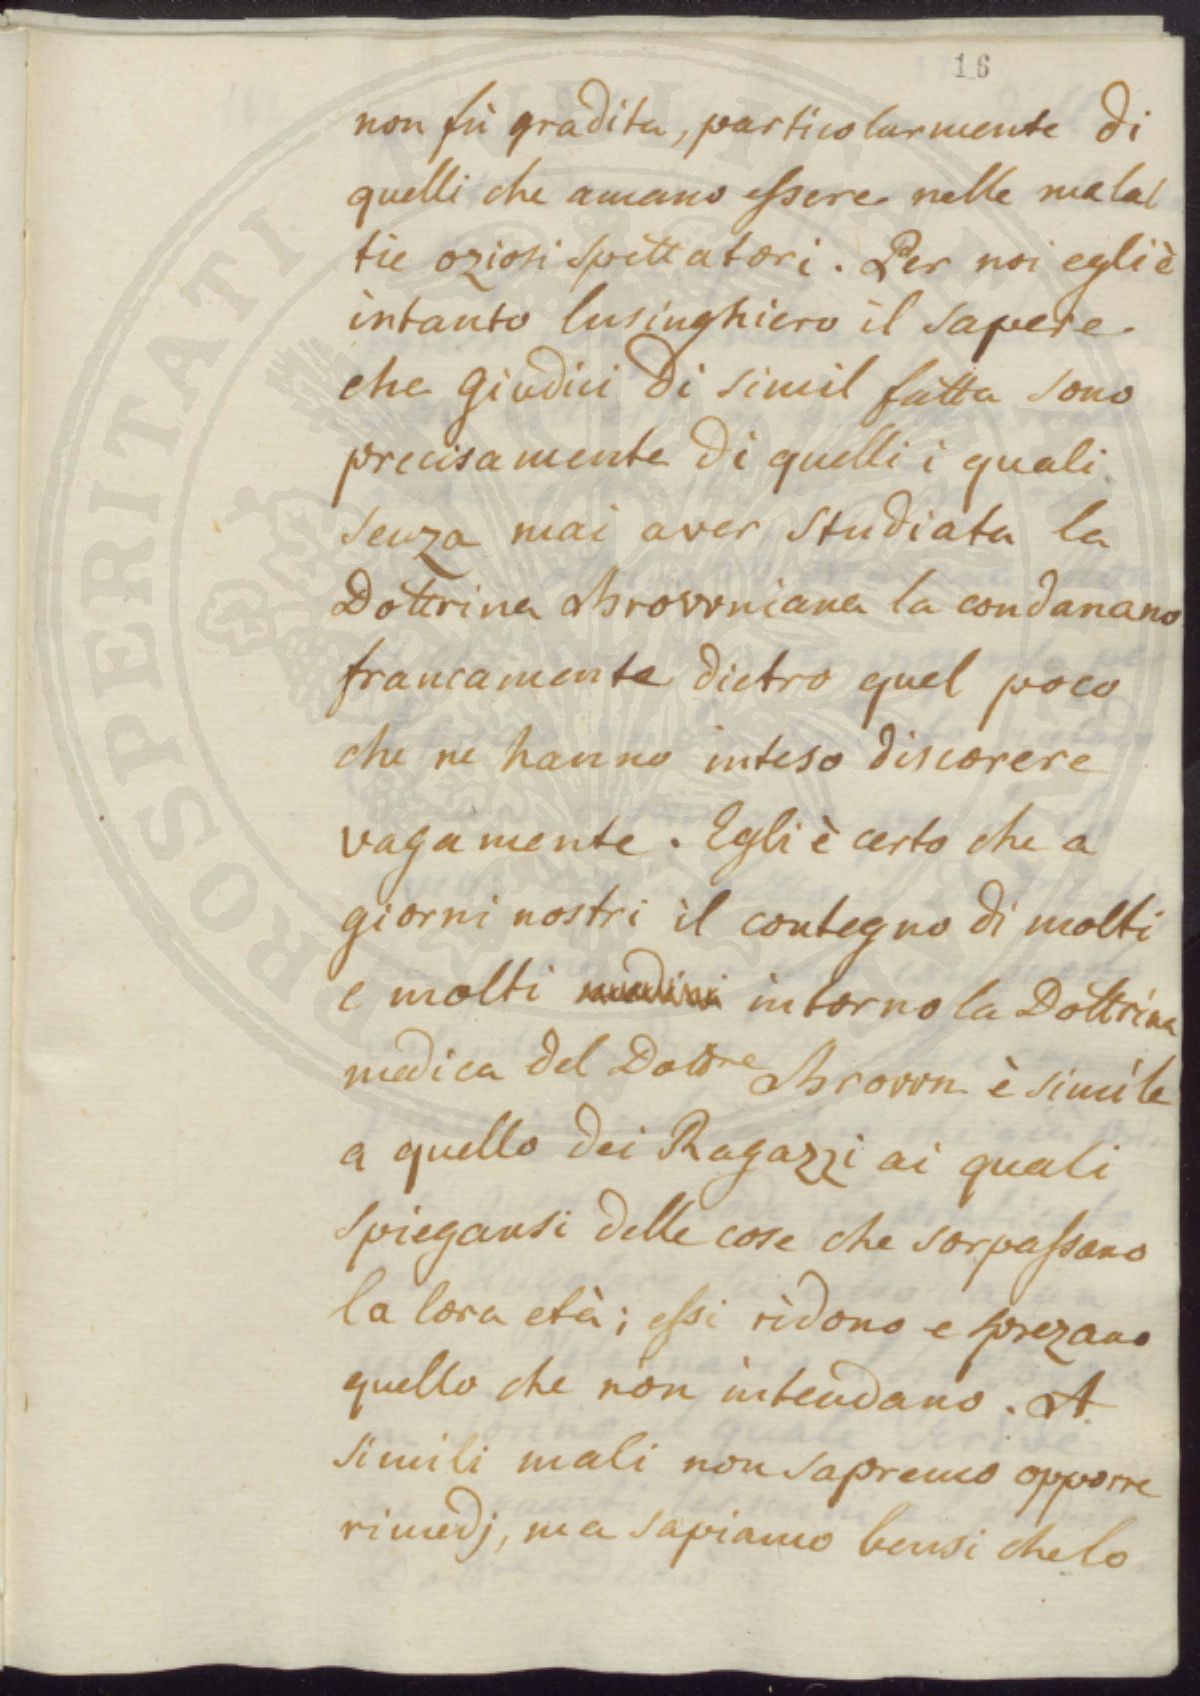 16
non fù gradita, particolarmente di
quelli che amano essere nelle malat
tie oziosi spettatori. Per noi egli è
intanto lusinghiero il sapere
che Giudici di simil fatta sono
precisamente di quelli i quali
senza mai aver studiata la
Dottrina Brovvniana la condanano
francamente dietro quel poco
che ne hanno inteso discorere
vagamente. Egli è certo che a
giorni nostri il contegno di molti
e molti intorno la Dottrina
medica del Dottre Brovvn è simile
a quello dei Ragazzi ai quali
spiegansi delle cose che sorpassano
la lora età; essi ridono e sprezano
quello che non intendano. A
simili mali non sapremo opporre
rimedj, ma sapiamo bensi che lo
PROSPERITATI PUBLICAE